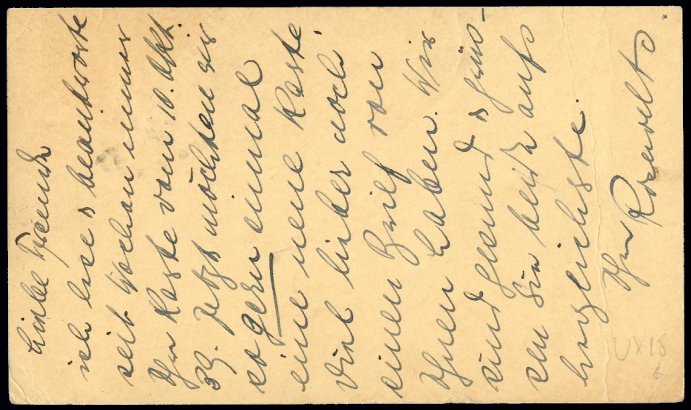 Liebe Freunde
ich lese & beantworte
seit Wochen immer
Ihre Karte vom 10. Okt.
39. Jetzt möchten wir
so gern einmal
eine neue Karte,
viel lieber noch
einen Brief von
Ihnen haben. Wir
sind gesund & grüs-
sen Sie beide aufs
herzlichste.
Ihre
UX18